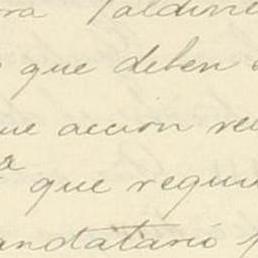 ra Valdivie
que deben
ue acción re
a
que requi
andatario p